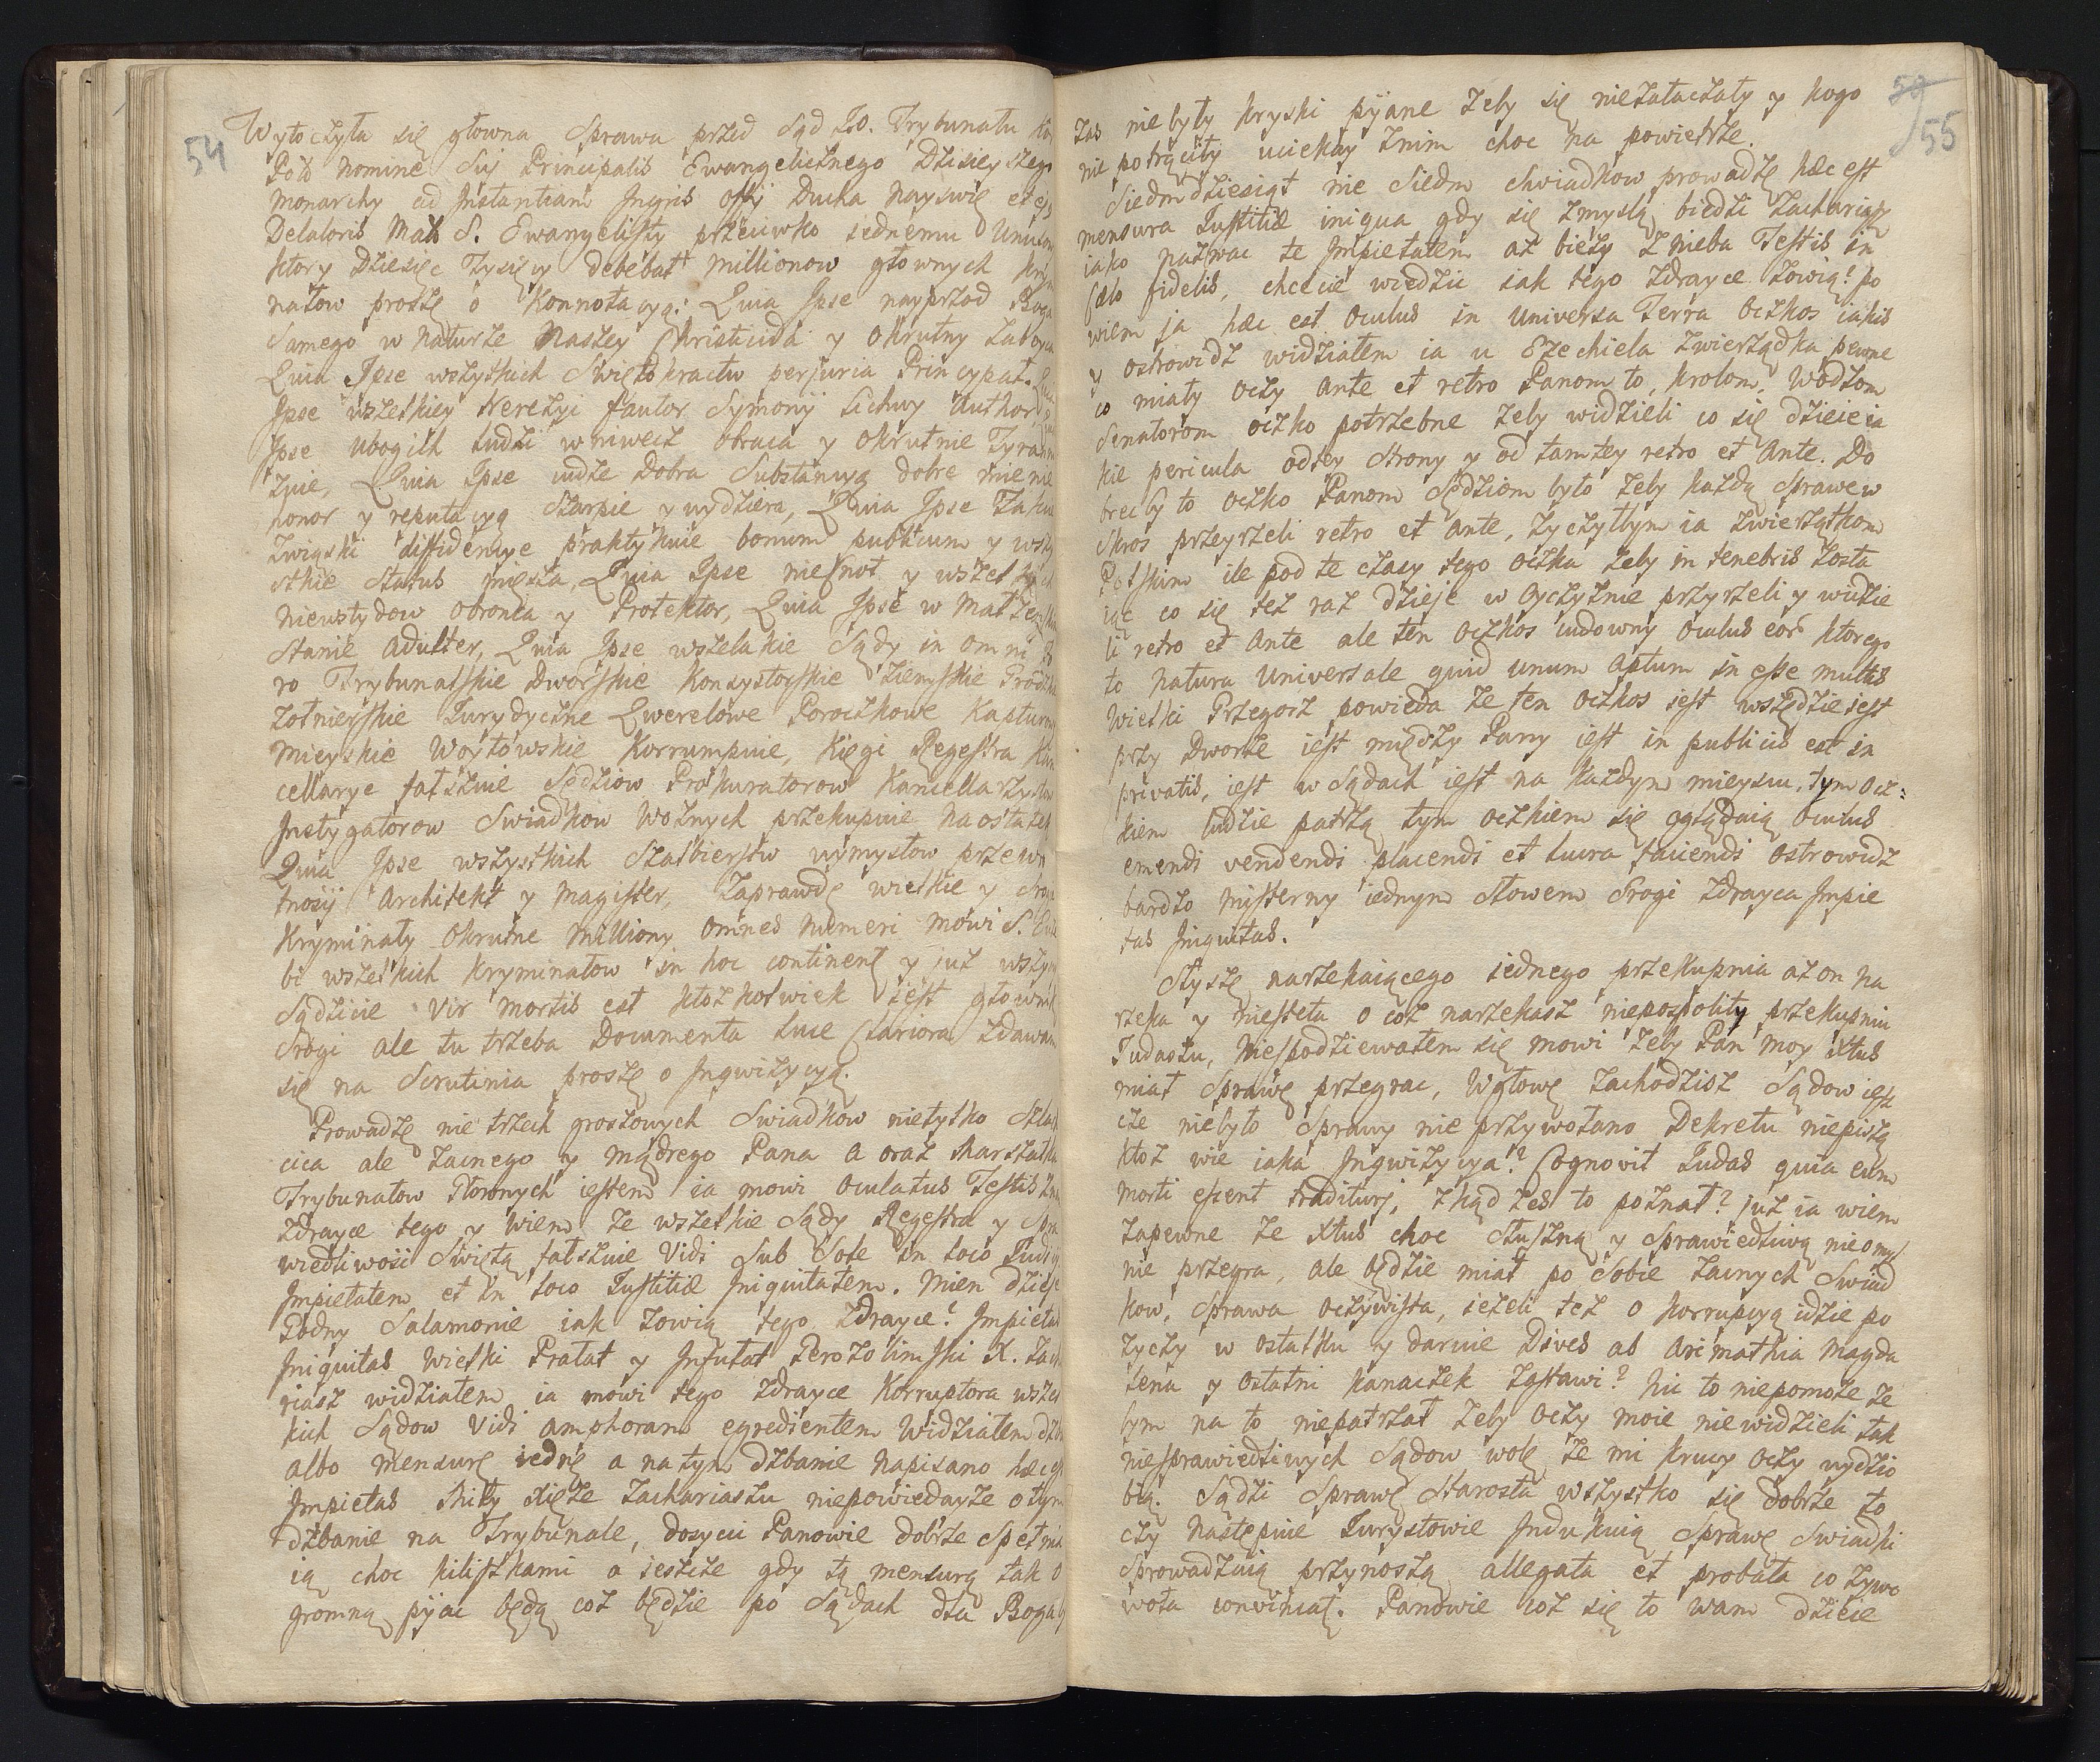 54
Wytoczyła się głowna Sprawa przed Sąd J.O. Trybunału
nomine Sui Principalis Ewangelicznego Dzisieyszego
Monarchy ad Instantiam Ingris Ducha Nayswię et ejs
Delatoris S. Ewangelisty przeciwko iednemu
ktory Dziesięc Tysięcy debebat Millionow głownych
nałow proszę o Konnotacyą: Quia Ipse nayprzod Boga
Samego w Naturze Naszey Christicida y okrutny
Quia Ipse wszystkich Swiętokractw perjuria Principat.
Ipse wszelkiey Herezyi fautor Symonij Lichwy Author
Ipse ubogich ludzi w niwecz obraca y okrutnie
Quia Ipse cudze Dobra Substancyą dobre mienie
honor y reputacyą Szarpie y wydziera, Quia Ipse
Zwiąski diffidencye praktykuie bonum publicum y
stkie Status miesza, Quia Ipse niecnot y
niewstydow obronca y Protektor, Quia Ipse w
Stanie Adulter, Quia Ipse wszelakie Sądy in omni
ro Trybunalskie Dworskie Konsystorskie Ziemskie
Zołnierskie Jurydyczne Qwerelowe Poroczkowe
Mieyskie Woytowskie Korrumpuie, Kięgi Regestra
cellarye fałszuie Sędziow Prokuratorow
Instygatorow Swiadkow Woznych przekupuie na ostatek
Quia Ipse wszystkich Szalbierstw wymysłow
tnosci Architekt y Magister, Zaprawdę wielkie y
Kryminały okrutne Milliony omnes numeri mowi S.
bi wszelkich Kryminałow in hoc continent y już
Sądzicie Vir mortis est ktozkolwiek iest
Srogi ale tu trzeba Documenta luce Clariora
się na Scrutinia proszę o Inqwizycyą.
Prowadzę nie trzech groszowych Swiadkow nietylko
cica ale Zacnego y mądrego Pana a oraz Marszałka
Trybunałow iestem ia mowi oculatus Testis
Zdrayce tego y wiem ze wszelkie Sądy Regestra y
wiedliwosci Swiętą fałszuie Vidi Sub Sole in loco
Impietatem et in loco Iustitiæ Iniquitatem. Mien
Salamonie iak zowią tego Zdrayce?
Iniquitas Wielki Prałat y Infułat X.
riasz widziałem ia mowi tego Zdrayce Korruptora
kich Sądow Vidi amphoram egredientem Widziałem
albo mensurę iednę a na tym dzbanie Napisano
Impietas Miły Xięze Zachariaszu niepowiedayze o tym
dzbanie na Trybunale, dosycci Panowie dobrze
ią choc kiliszkami a ieszcze gdy tą mensurą tak o
gromną pijac będą coz będzie po Sądach dla Boga
59
55
zas niebyły kryski pijane zeby się niezataczały y kogo
nie potrąciły uciekay znim choc na powietrze.
Siedmdziesiąt nie Siedm Swiadkow prowadzę hæc est
mensura Iustitiæ iniqua gdy się zmyslą biedzi Zachariasz
iako nazwac te Impietatem az biezy z nieba Testis in
cælo fidelis, chcecie wiedziec iak tego Zdrayce zowią? po
wiem ja hæc est oculus in Universa Terra oczkos iakis
y ostrowidz widziałem ia u Ezechiela zwierządka pewne
co miały oczy ante et retro Panom to, krolom, Wodzom
Senatorom oczko potrzebne zeby widzieli co się dzieie ia
kie pericula od tey Strony y od tamtey retro et Ante. Do
breby to oczko Panom Sędziom było zeby kazdą Sprawe w
Skros przeyrzeli retro et Ante, zyczyłbym ia zwierzątkom
Polskim ile pod te czasy tego oczka zeby in tenebris zosta
iąc co się tez raz dzieje w Oyczyznie przyrzeli y widzie
li retro et Ante ale ten oczkos cudowny oculus eor ktorego
to Natura Universale quid unum aptum in esse multis
Wielki Przegocz powieda ze ten oczkos iest wszędzie iest
przy Dworze iest między Pany iest in publicis est in
privatis, iest w Sądach iest na kazdym mieyscu, tym ocz=
kiem ludzie patrzą tym oczkiem się oglądaią oculus
emendi vendendi placendi et lucra faciendi ostrowidz
bardzo misterny iednym Słowem Srogi Zdrayca Impie
tas Iniquitas.
Słyszę narzekaiącego iednego przekupnia az on na
rzeka y niestety o coz narzekasz niepospolity przekupniu
Judaszu, Niespodziewałem się mowi zeby Pan moy Xtus
miał Sprawę przegrac, Wgłowę zachodzisz Sądow iesz
cze niebyło Sprawy nie przywołano Dekretu niepiszą
ktoz wie iaka Inqwizycya? Cognovit Judas quia eum
morti essent tradituri, zkąd zes to poznał? juz ia wiem
zapewne ze Xtus choc Słuszną y Sprawiedliwą
nie przegra, ale będzie miał po Sobie zacnych Swiad
kow, Sprawa oczywista, iezeli tez o korrupcyą idzie po
zyczy w ostatku y daruie Dives ab Arimathia Magda
lena y ostatni kanaczek zastawi? Nic to niepomoze ze
bym na to niepatrzał zeby oczy moie niewidzieli tak
niesprawiedliwych Sądow wolę ze mi krucy oczy wydzio
bią. Sądzi Sprawę Starosta wszystko się dobrze to
czy Następuie Iurystowie Indukuią Sprawę Swiadki
Sprowadzaią przynoszą allegata et probata co zywo
woła convincat. Panowie coz się to wam dzieie